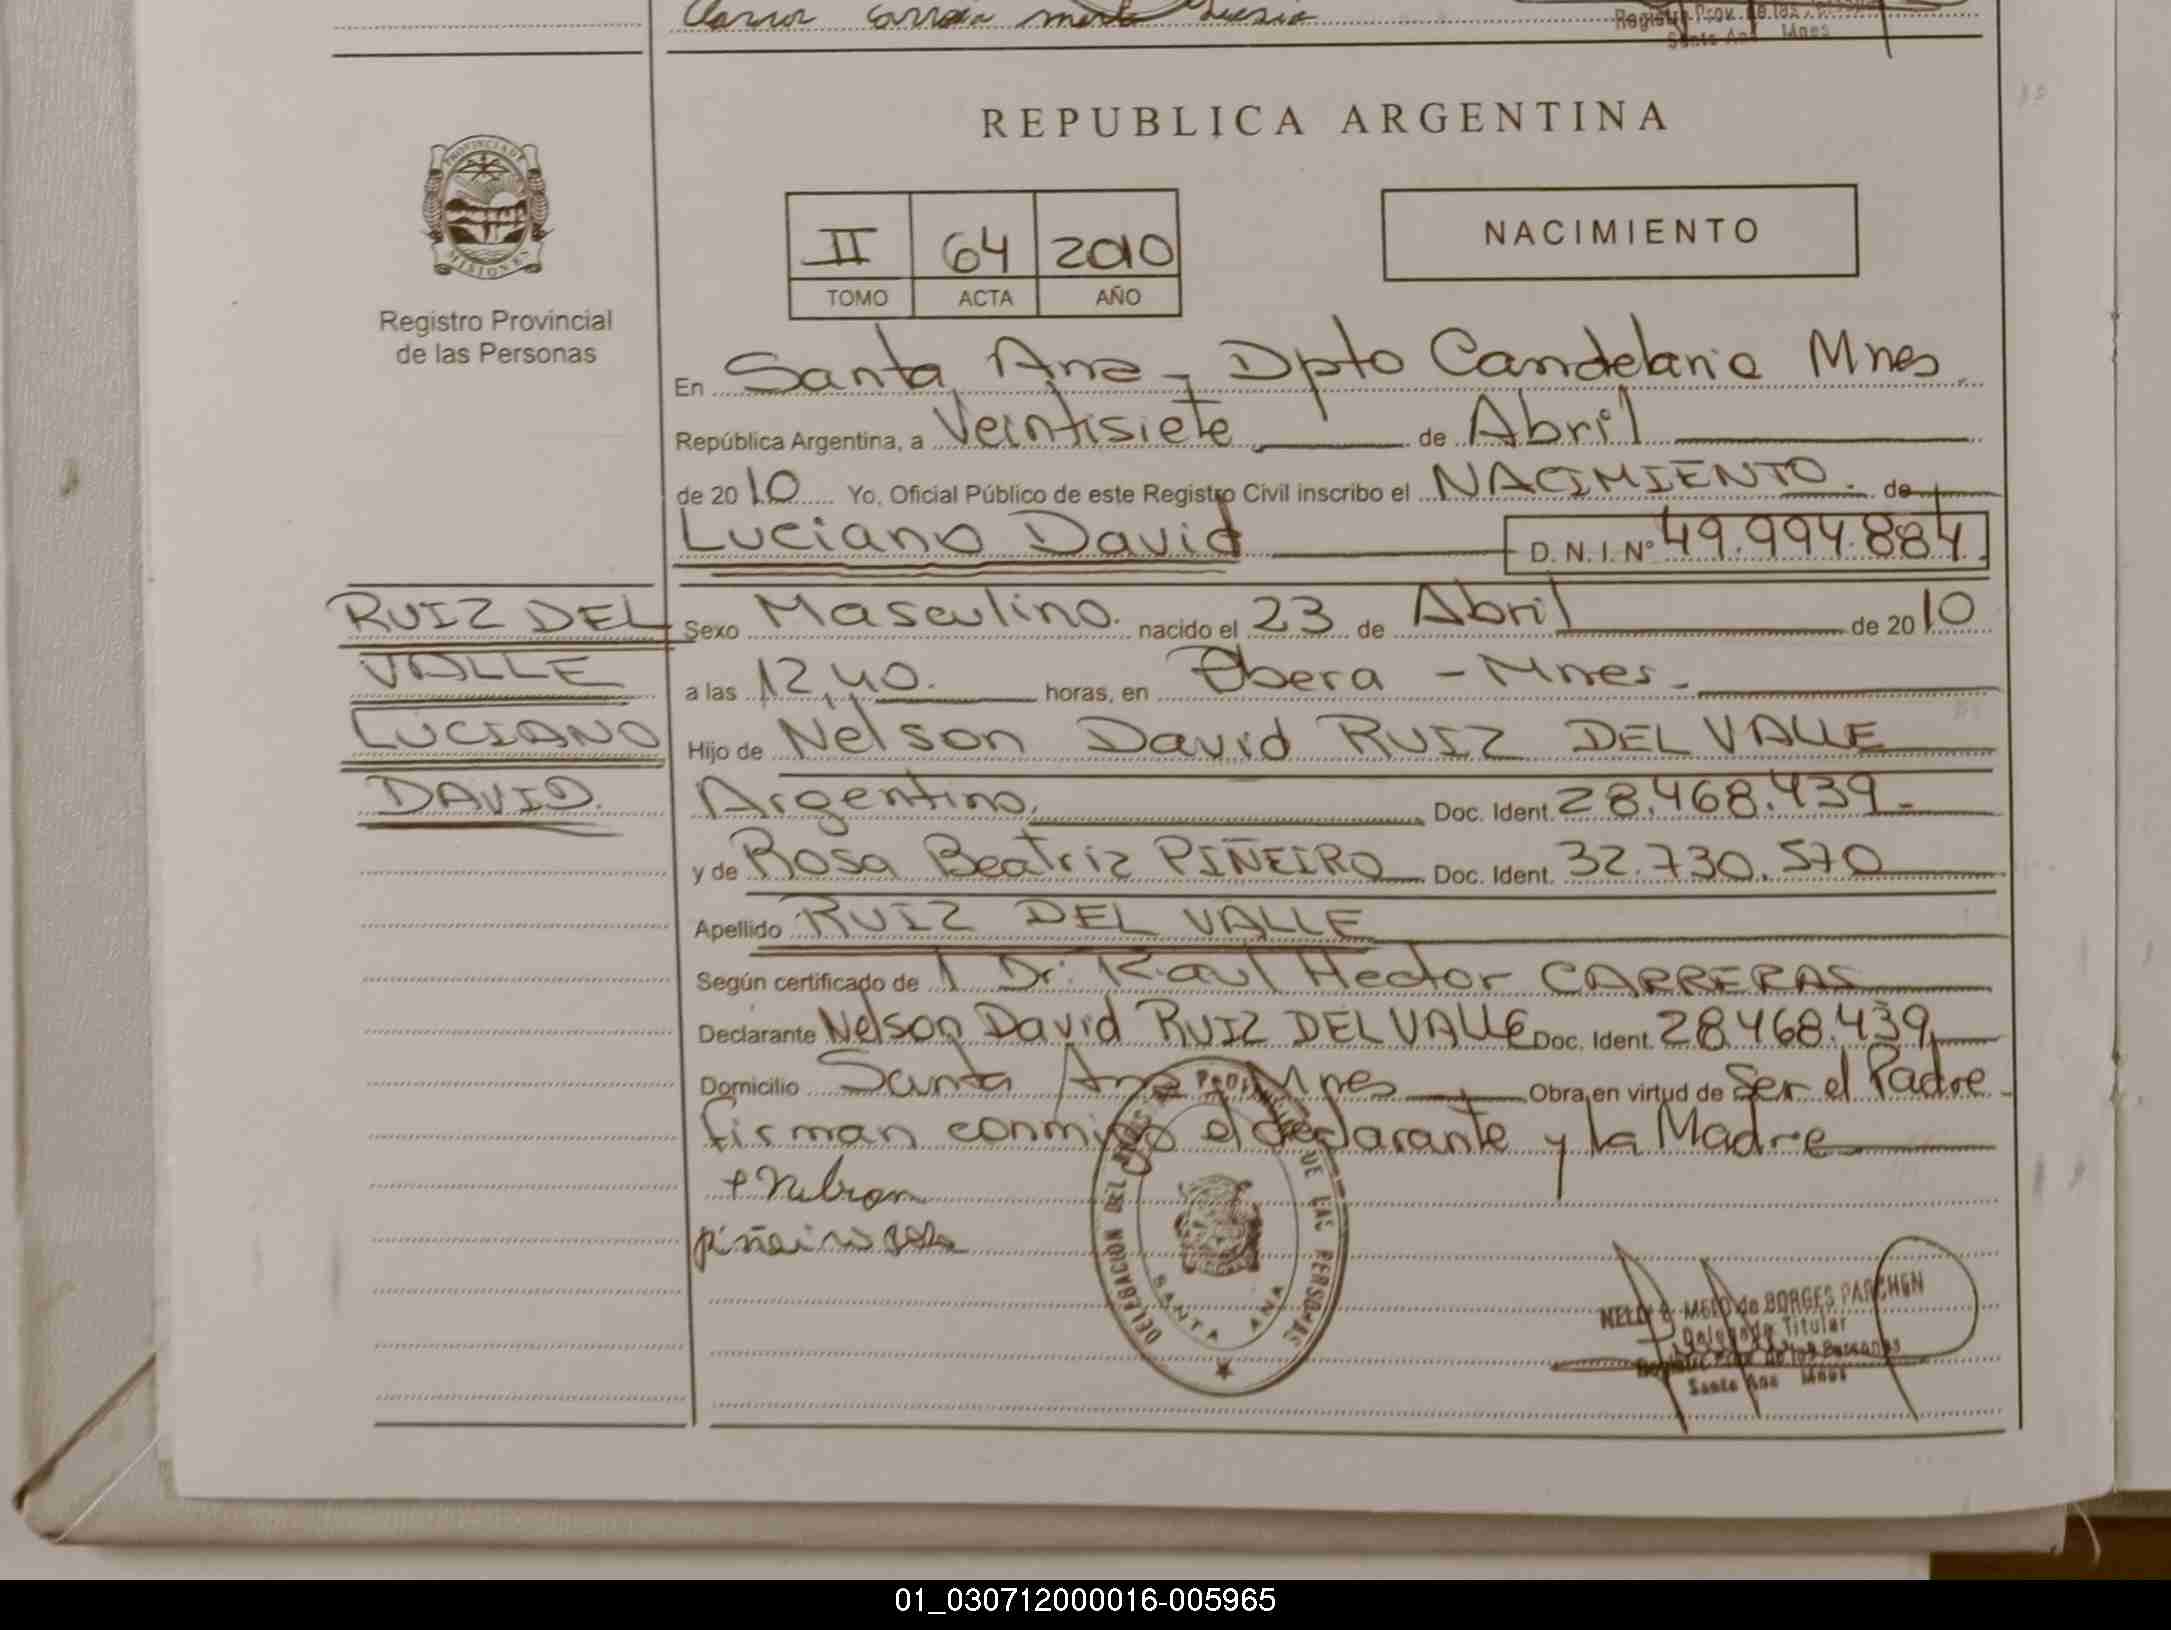 REPUBLICA ARGENTINA
PROVINCIA DE MISIONES
Registro Provincial
de las Personas
II 64 2010
TOMO ACTA AÑO
NACIMIENTO
En Santa Ana - Dpto Candelaria Mnes.
República Argentina, a Veintisiete de Abril
de 2010 Yo, Oficial Público de este Registro Civil inscribo el NACIMIENTO. de
Luciano David D. N. I. Nº 49.994.884.
RUIZ DEL
VALLE
LUCIANO
DAVID.
Sexo Masculino. nacido el 23 de Abril de 2010
a las 12,40. horas, en Obera - Mnes.
Hijo de Nelson David RUIZ DEL VALLE
Argentino. Doc. Ident. 28.468.439.-
y de Rosa Beatriz PIÑEIRO Doc. Ident. 32.730.570
Apellido RUIZ DEL VALLE
Según certificado de Dr. Raul Hector CARRERAS
Declarante Nelson David RUIZ DEL VALLE Doc. Ident. 28.468.439
Domicilio Santa Ana Mnes Obra en virtud de Ser el Padre
firman conmigo el declarante y la Madre
piñeiro
DELEGACION DEL PROVINCIAL DE LAS PERSONAS
SANTA ANA
MELO de BORGES PARCHEN
Delegada Titular
Registro Prov. de las Personas
Santa Ana Mnes
01_030712000016-005965